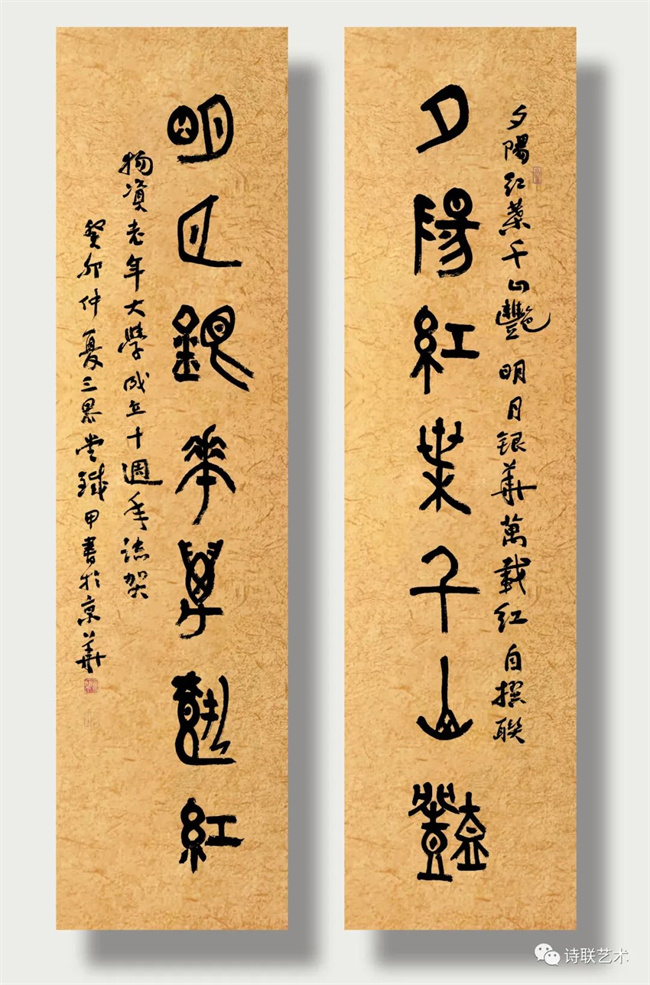 夕陽红葉千山艷 明月银華萬載红 自撰联
夕陽紅葉千山豔
明月銀華萬載紅
物資老年大學成立十週年誌賀
癸卯仲夏三 堂 甲書於京華
诗联艺术